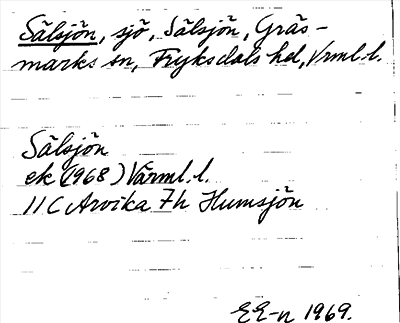 Sälsjön, sjö, Sälsjön, Gräs-
marks sn, Fryksdals hd, Vrml. l.
Sälsjön
ek (1968) Värml. l.
11 C Arvika 7h Humsjön
EE-n 1969.